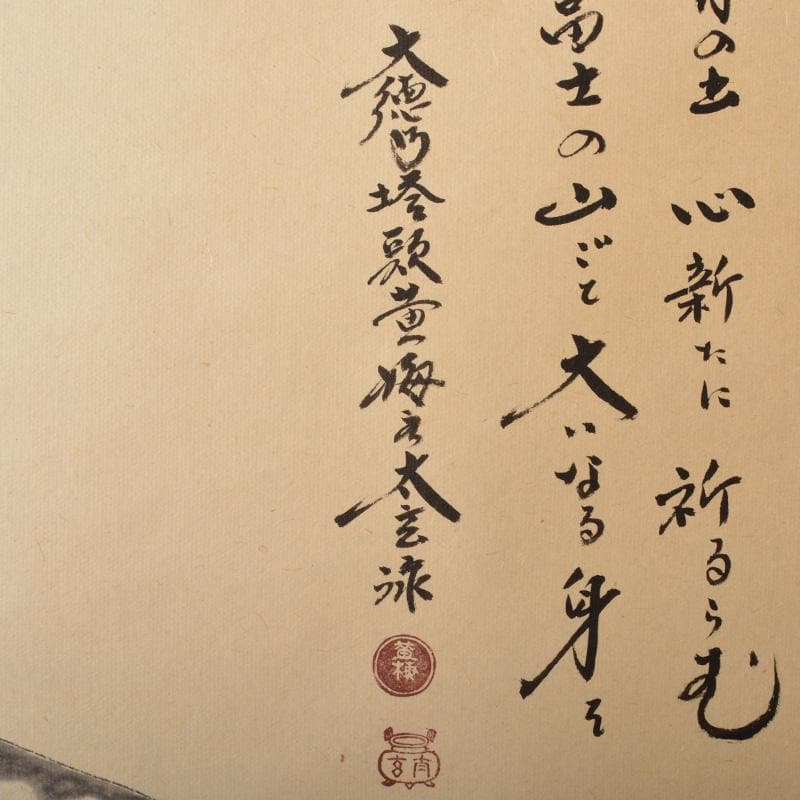 の出 心新たに 祈るらむ
富士の山ごと大いなる身
大徳寺塔頭黄梅院太玄詠
黄梅